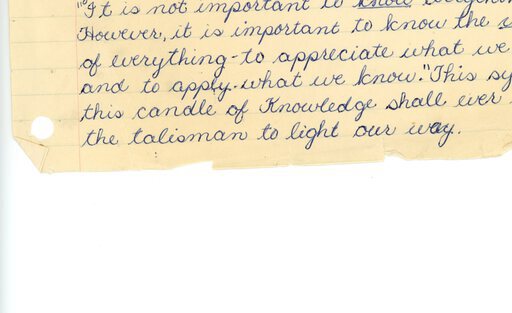 "It is not important to know everything
However, it is important to know the v
of everything-to appreciate what we
and to apply-what we know." This sy
this candle of Knowledge shall ever
the talisman to light our way.